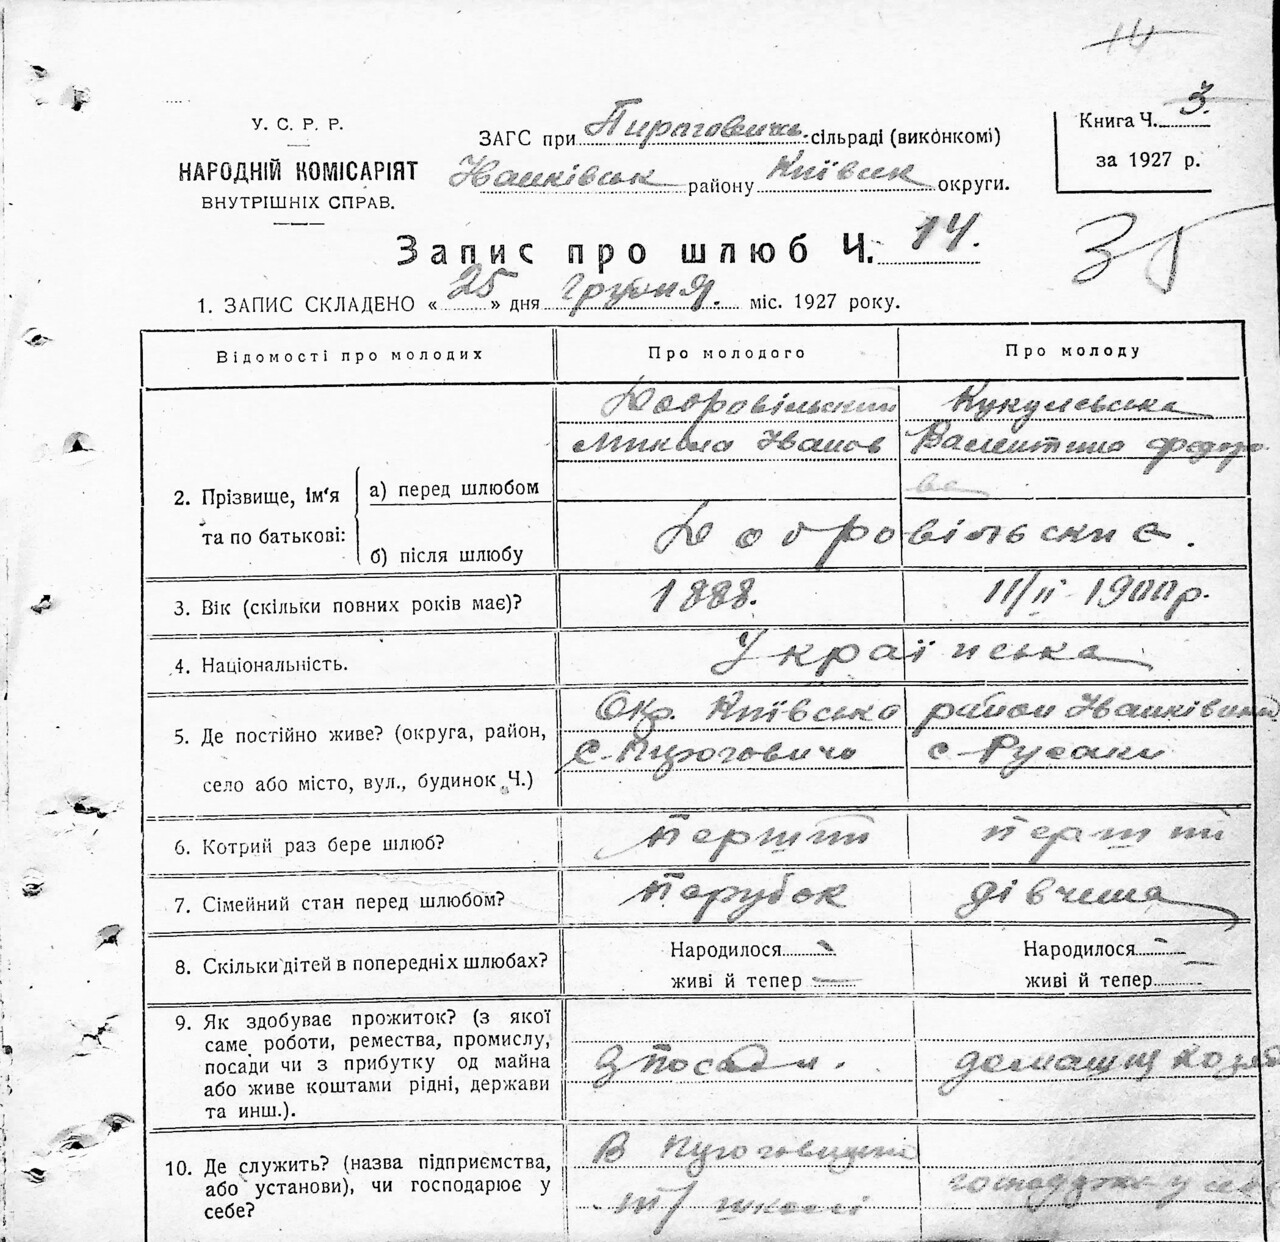 14
У. С. Р. Р.
НАРОДНІЙ КОМІСАРІЯТ
ВНУТРІШНІХ СПРАВ.
ЗАГС при Пироговицьк. сільраді (виконкомі)
району Київськ округи.
Книга Ч. 3.
за 1927 р.
Запис про шлюб Ч. 14.
35
1. ЗАПИС СКЛАДЕНО « 25 » дня Грудня. міс. 1927 року.
Відомості про молодих
Про молодого
Про молоду
2. Прізвище, ім'я та по батькові:
а) перед шлюбом
Добровільский
Микола Іванов
Кукулевська
Валентина Федоро
ва
б) після шлюбу
Добровільские.
3. Вік (скільки повних років має)?
1888.
11/ІІ - 1900 р.
4. Національність.
Українська
5. Де постійно живе? (округа, район,
село або місто, вул., будинок Ч.)
Окр. Київська
район
с.
с. Русаки
6. Котрий раз бере шлюб?
перший
перший
7. Сімейний стан перед шлюбом?
парубок
дівчина
8. Скільки дітей в попередніх шлюбах?
Народилося –
живі й тепер –
Народилося –
живі й тепер –
9. Як здобуває прожиток? (з якої
саме роботи, ремества, промислу,
посади чи з прибутку од майна
або живе коштами рідні, держави
та инш.).
З посади.
домашн
10. Де служить? (назва підприємства,
або установи), чи господарює у
себе?
В
т/школі
у себе